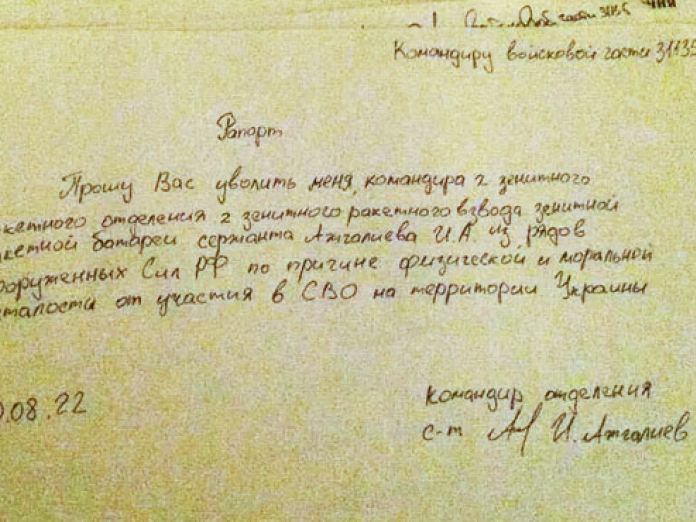 части 3135
Командиру войсковой части 31135
Рапорт
Прошу Вас уволить меня, командира 2 зенитного
кетного отделения 2 зенитного ракетного взвода зенитной
кетной батареи сержанта Ажгалиева И.А. из рядов
оруженных Сил РФ по причине физической и моральной
сталости от участия в СВО на территории Украины
.08.22
командир отделения
с-т И. Ажгалиев